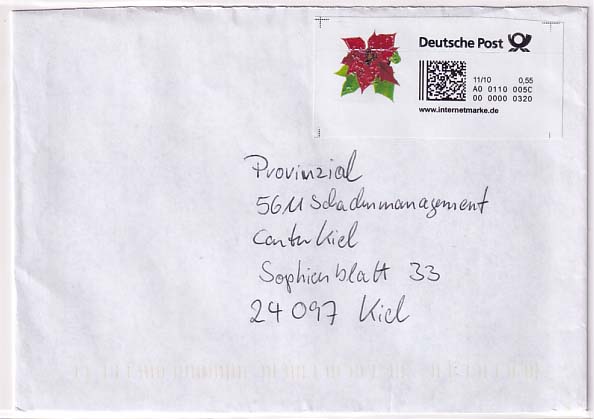 Deutsche Post
11/10 0,55
A0 0110 005C
00 0000 0320
www.internetmarke.de
Provinzial
5611 Schadenmanagement
Center Kiel
Sophienblatt 33
24097 Kiel